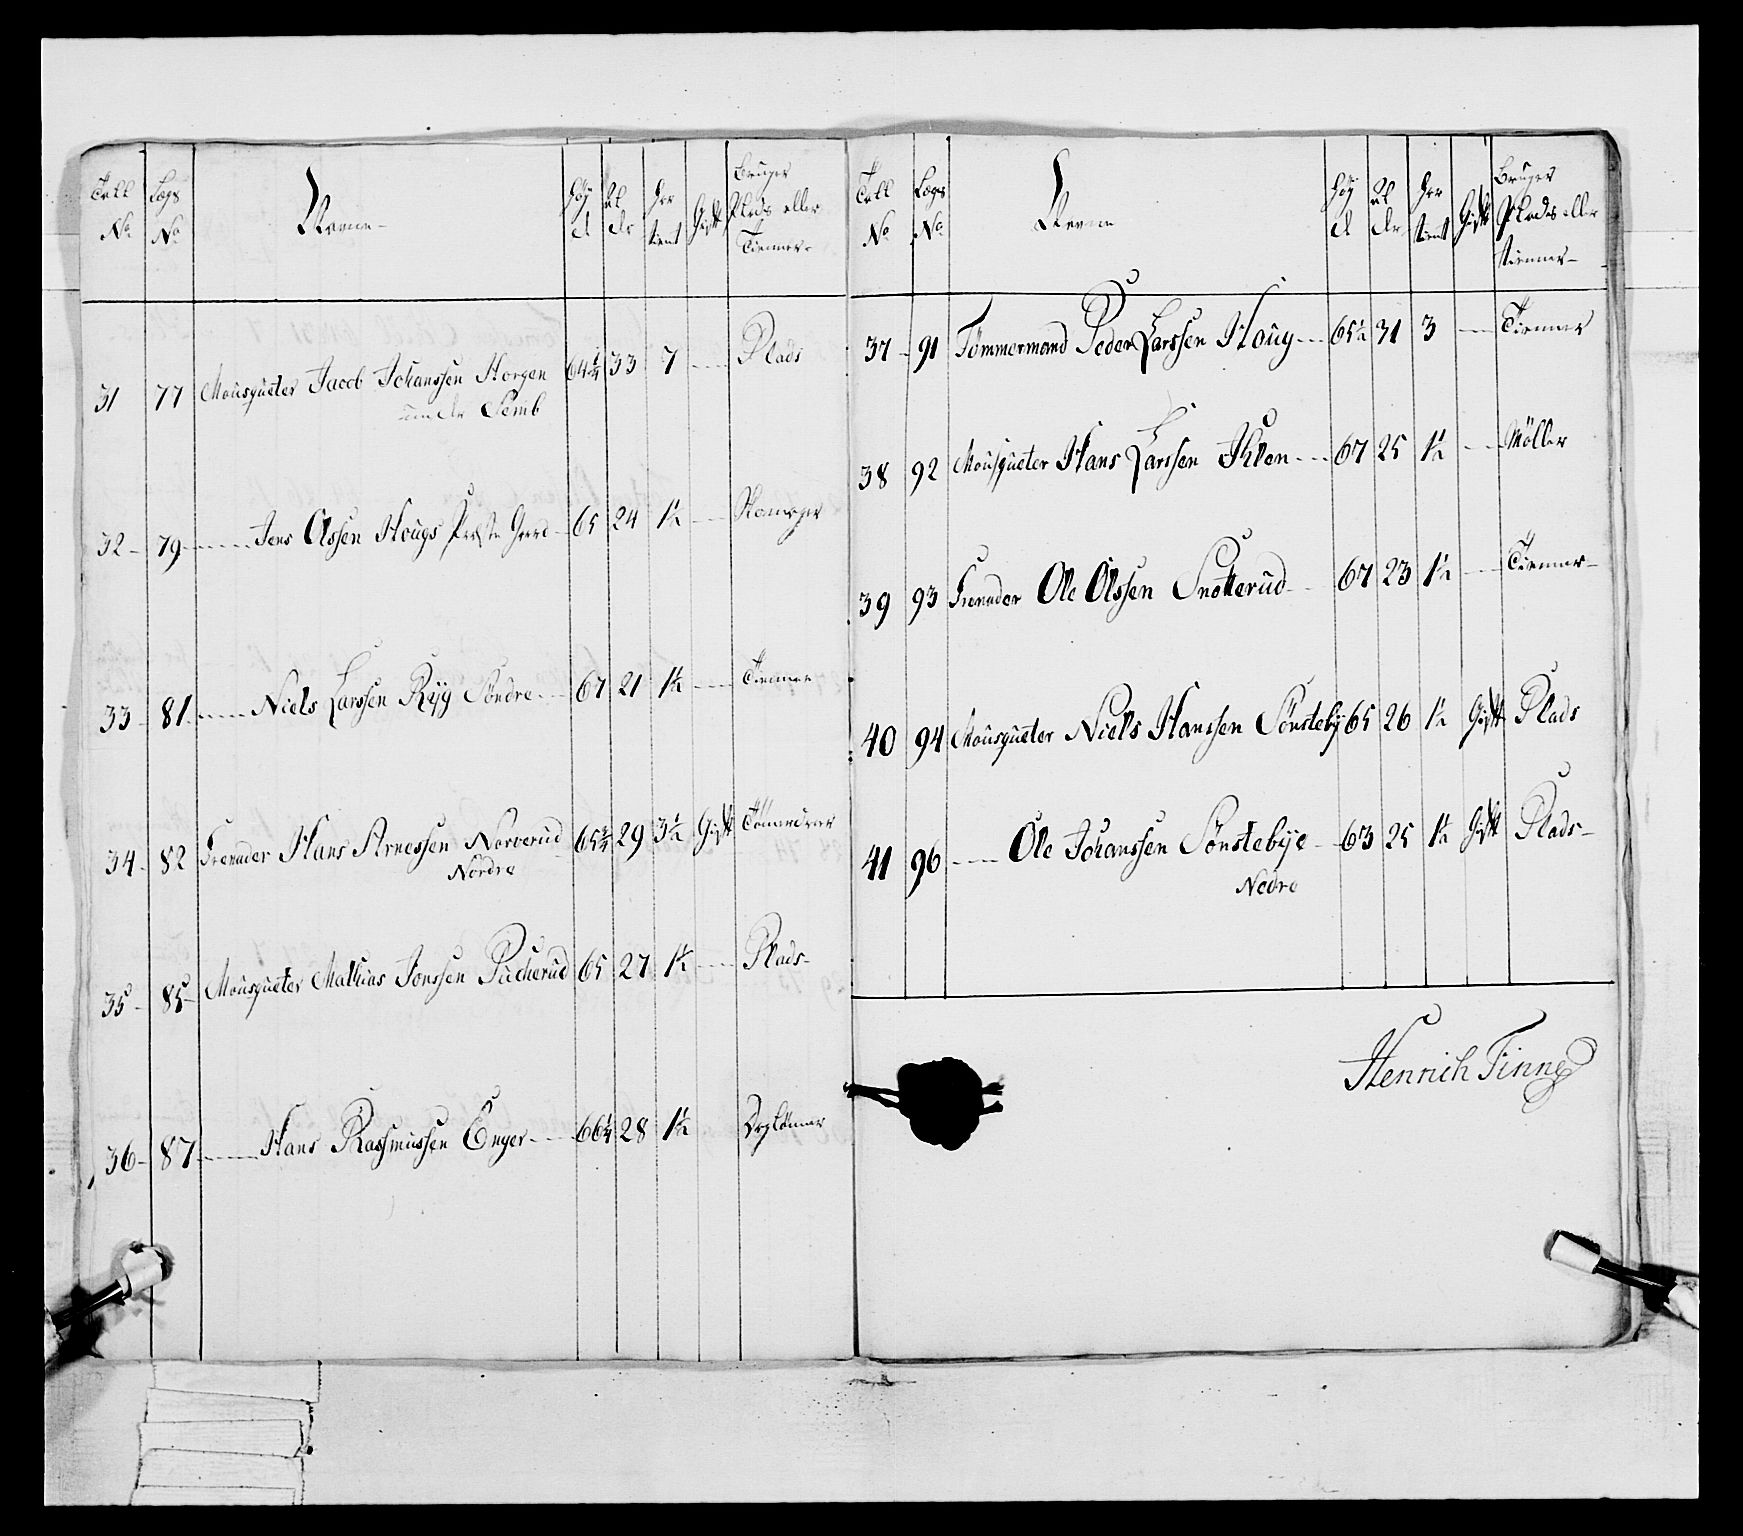 Tall No | Lægs No | Navne | Høy de | Al der | Har tient | Gift | Bruger Plads eller Tienner
31 77 Mousqueter Jacob Johanssen Horgen 64¼ 33 7 Plads
under Semb
32 79 Jens Olssen Hougs Præste Gaard 65 24 1½
33 81 Niels Larssen Ryg Søndre 67 21 1½ Tienner
34 82 Grenader Hans Arnessen Norverud 65¾ 29 3½ Gift
Nordre
35 85 Mousqueter Mathias Jonssen Pücherud 65 27 1½ Plads
36 87 Hans Rasmussen Enger 66¼ 28 1½
Tall No | Lægs No | Navne | Høy de | Al der | Har tient | Gift | Bruger Plads eller Tienner
37 91 Tømmermand Peder Larssen Houg 65½ 31 3 Tienner
38 92 Mousqueter Hans Larssen Ihlen 67 25 1½ Møller
39 93 Grenader Ole Olssen Snotterud 67 23 1½ Tienner
40 94 Mousqueter Niels Hanssen Sønsteby 65 26 1½ Gift Plads
41 96 Ole Johanssen Sønstebye 63 25 1½ Gift Plads
Nedre
Henrich Finne